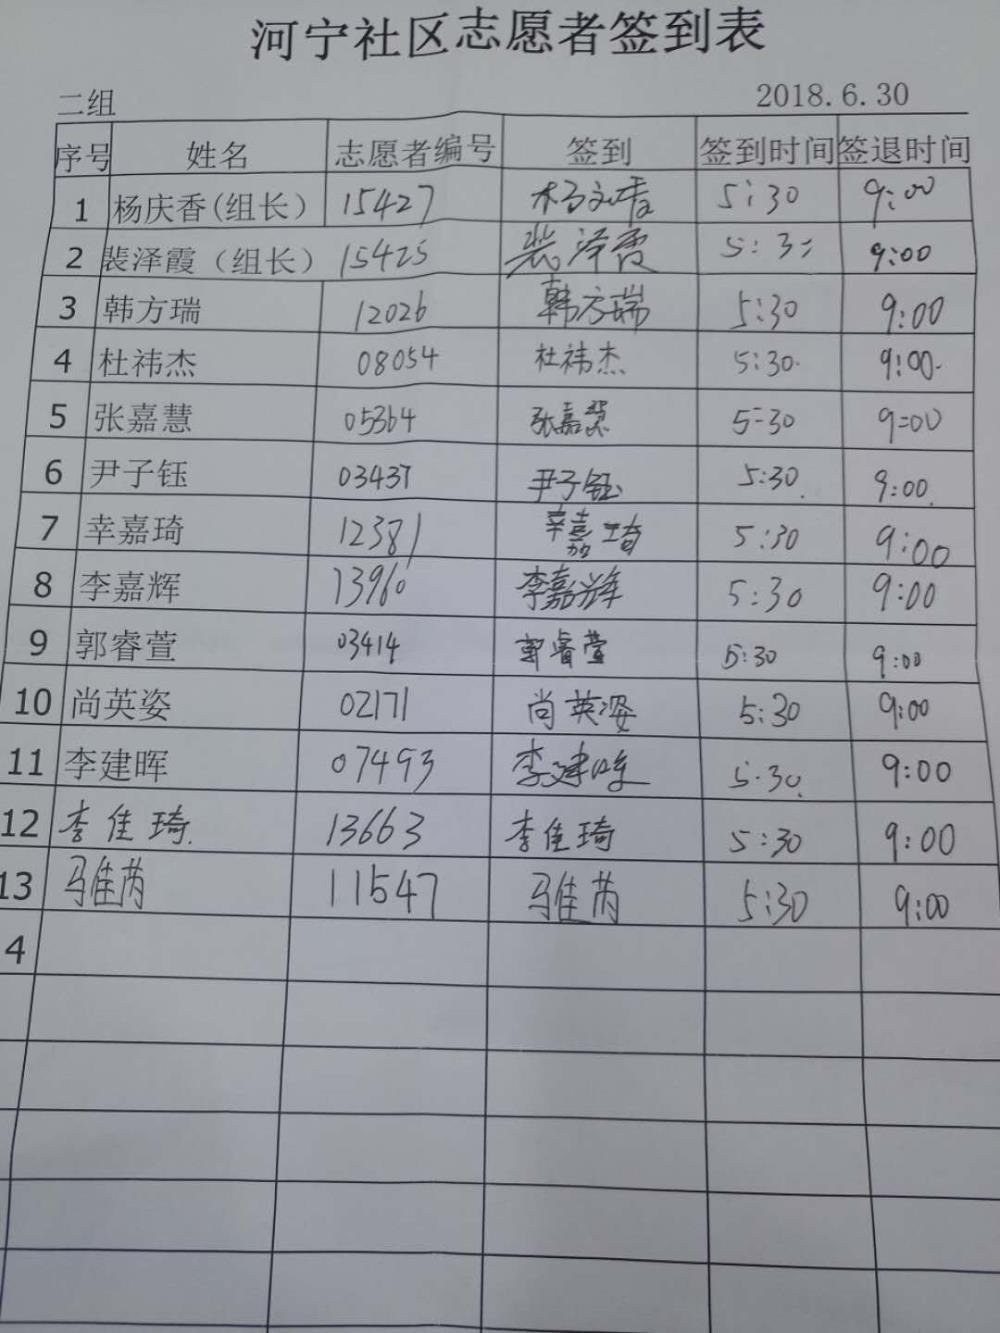 河宁社区志愿者签到表
二组 2018.6.30
序号 姓名 志愿者编号 签到 签到时间 签退时间
1 杨庆香(组长) 15427 杨庆香 5:30 9:00
2 裴泽霞(组长) 15425 裴泽霞 5:30 9:00
3 韩方瑞 12026 韩方瑞 5:30 9:00
4 杜祎杰 08054 杜祎杰 5:30 9:00
5 张嘉慧 05364 张嘉慧 5:30 9:00
6 尹子钰 03437 尹子钰 5:30 9:00
7 幸嘉琦 12381 幸嘉琦 5:30 9:00
8 李嘉辉 13960 李嘉辉 5:30 9:00
9 郭睿萱 03414 郭睿萱 5:30 9:00
10 尚英姿 02171 尚英姿 5:30 9:00
11 李建晖 07493 李建晖 5:30 9:00
12 李佳琦 13663 李佳琦 5:30 9:00
13 马佳芮 11547 马佳芮 5:30 9:00
4